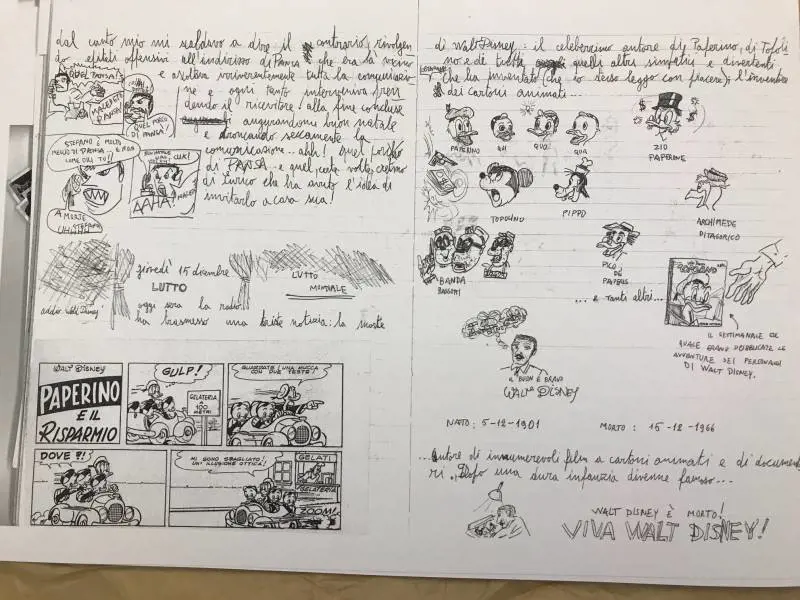 dal canto mio mi saldavo a dire il contrario, rivolgen
do epiteti offensivi all'indirizzo di PANSA che era lì vicino
e ascoltava tutta la comunicazio-
ne e ogni tanto interveniva pren
dendo il ricevitore. alla fine concluse
augurandomi buon natale
e troncando seccamente la
comunicazione... ahh! quel
di PANSA e quel, certe volte, cretino
di che ha avuto l'idea di
invitarlo a casa sua!
MALEDETTO PANSA!
QUEL PORCO DI PANSA!
STEFANO È MOLTO
MEGLIO DI PANSA... E NON
COME DICI TU!!
AAHA!
A MORTE
STEFANO
giovedì 15 dicembre
LUTTO
LUTTO
MONDIALE
addio Walt Disney
oggi sera la radio
ha trasmesso una triste notizia: la morte
WALT DISNEY
PAPERINO
E IL
RISPARMIO
GULP!
GELATERIA
A
100
METRI
GUARDATE! UNA MUCCA
CON DUE TESTE!
DOVE?!
MI SONO SBAGLIATO!
UN'ILLUSIONE OTTICA!
GELATI
GELATERIA
ZOOM!
di Walt Disney: il celeberrimo autore di Paperino, di Topoli
no e di tutti quelli altri simpatici e divertenti
che ha inventato (che io stesso leggo con piacere); l'inventore
dei cartoni animati...
PAPERINO
QUI
QUO
QUA
ZIO
PAPERONE
TOPOLINO
PIPPO
ARCHIMEDE
PITAGORICO
BANDA
BASSOTTI
PICO
DE
PAPERIS
... e tanti altri...
TOPOLINO
IL SETTIMANALE NEL
QUALE ERANO PUBBLICATE LE
AVVENTURE DEI PERSONAGGI
DI WALT DISNEY.
IL BUON E BRAVO
WALT DISNEY
NATO: 5-12-1901
MORTO: 15-12-1966
...autore di innumerevoli film a cartoni animati e di documenta
ri. Dopo una dura infanzia divenne famoso...
WALT DISNEY È MORTO!
VIVA WALT DISNEY!